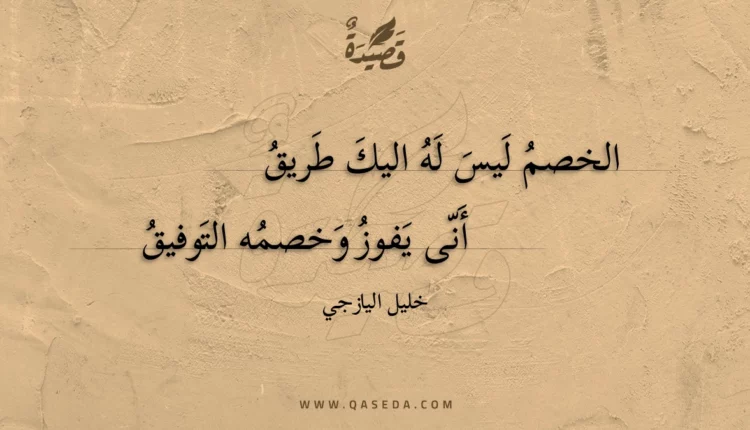 قَصِيدَةٌ
الخصمُ لَيسَ لَهُ اليكَ طَريقُ
أَنّى يَفوزُ وَخصمُه التَوفيقُ
خليل اليازجي
WWW.QASEDA.COM